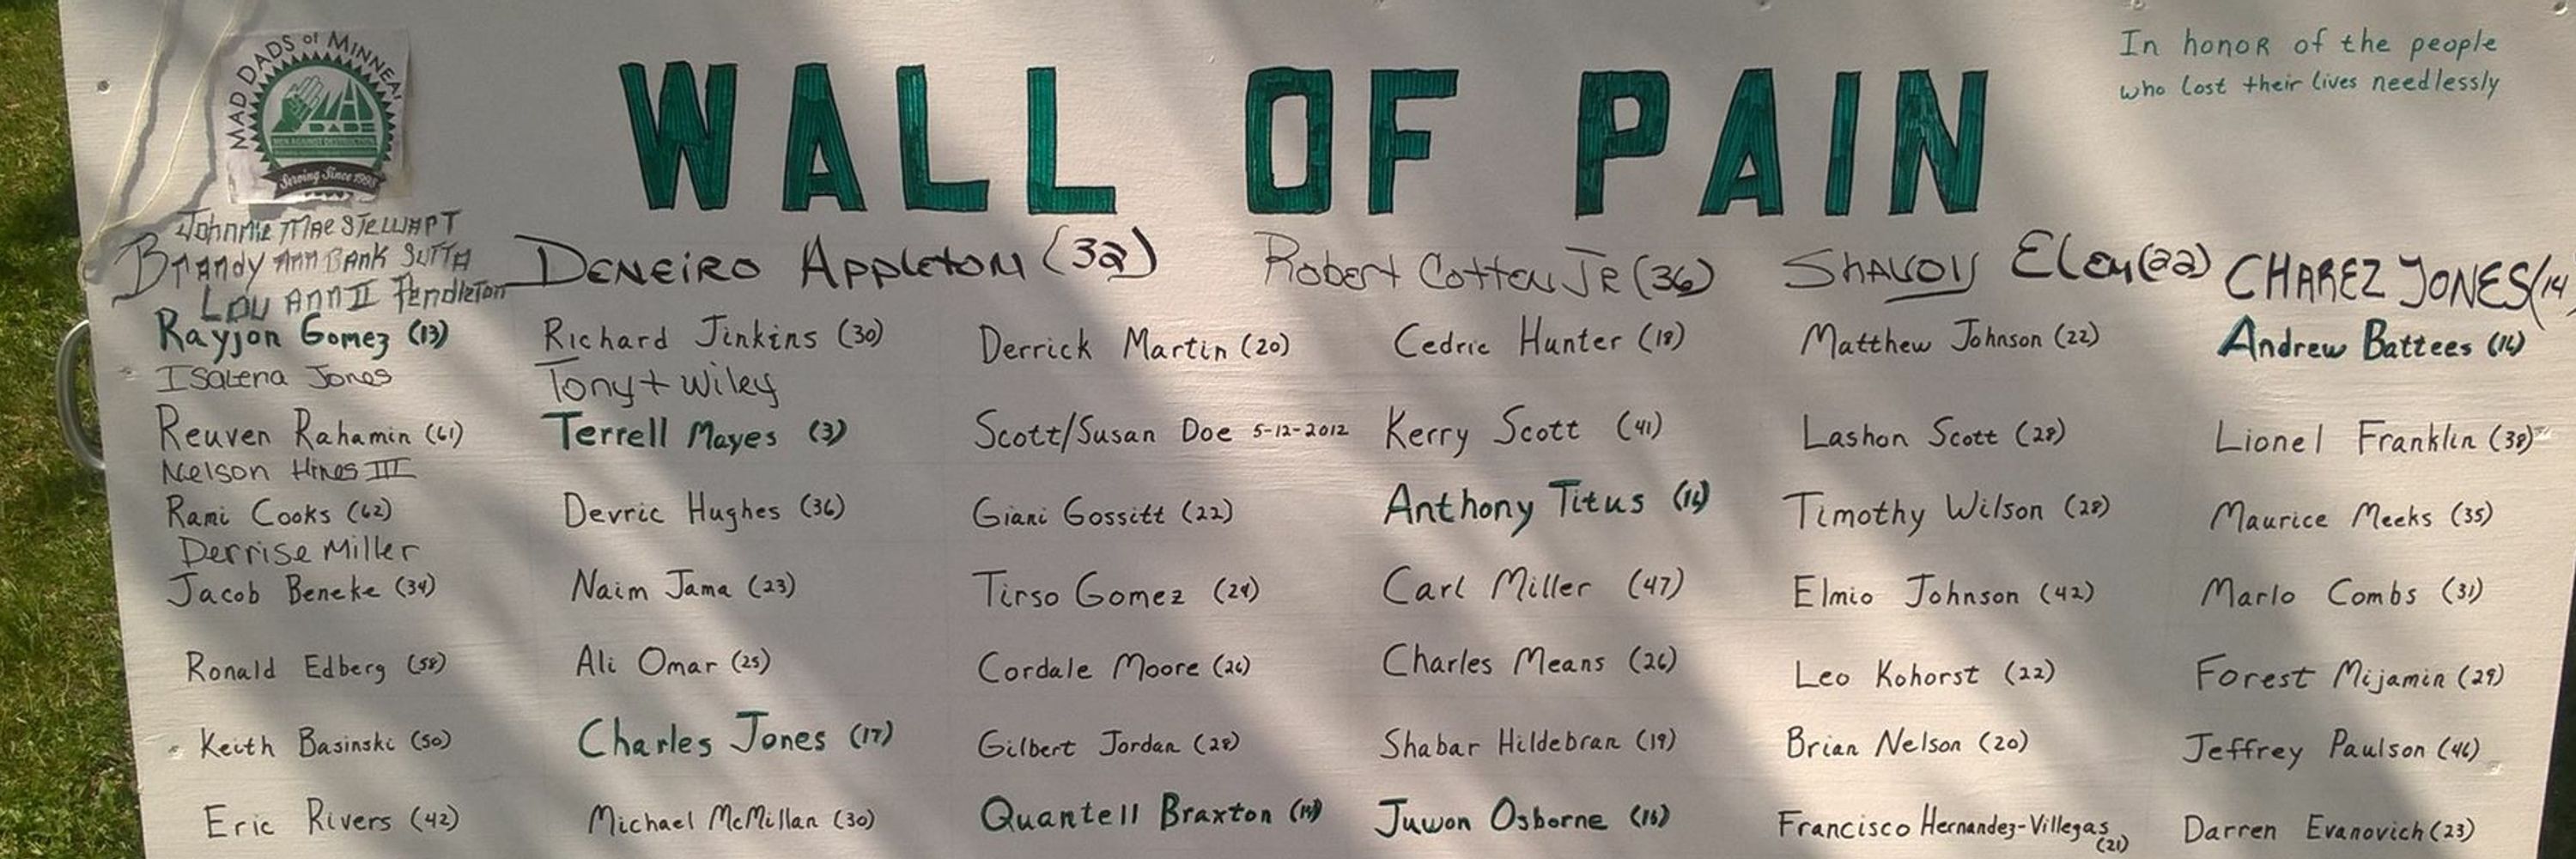 MAD DADS of MINNEA
MAD
DADS
MEN AGAINST DESTRUCTION
Serving Since 1998
WALL OF PAIN
In honor of the people
who lost their lives needlessly
Johnnie Mae Stewart
Brandy Ann Bank Sutta
Lou Ann II Pendleton
Deneiro Appleton (32)
Robert Cotten Jr (36)
Shavois Eley (22)
CHAREZ JONES (14)
Rayjon Gomez (13)
Richard Jinkins (30)
Derrick Martin (20)
Cedric Hunter (18)
Matthew Johnson (22)
Andrew Battees (16)
Isalena Jones
Tony + Wiley
Reuven Rahamin (61)
Terrell Mayes (3)
Scott/Susan Doe 5-12-2012
Kerry Scott (41)
Lashon Scott (28)
Lionel Franklin (38)
Nelson Hines III
Rami Cooks (62)
Devric Hughes (36)
Giani Gossitt (22)
Anthony Titus (16)
Timothy Wilson (28)
Maurice Meeks (35)
Derrise Miller
Jacob Beneke (34)
Naim Jama (23)
Tirso Gomez (24)
Carl Miller (47)
Elmio Johnson (42)
Marlo Combs (31)
Ronald Edberg (58)
Ali Omar (25)
Cordale Moore (26)
Charles Means (26)
Leo Kohorst (22)
Forest Mijamin (29)
Keith Basinski (50)
Charles Jones (17)
Gilbert Jordan (28)
Shabar Hildebran (19)
Brian Nelson (20)
Jeffrey Paulson (46)
Eric Rivers (42)
Michael McMillan (30)
Quantell Braxton (14)
Juwon Osborne (16)
Francisco Hernandez-Villegas
(21)
Darren Evanovich (23)